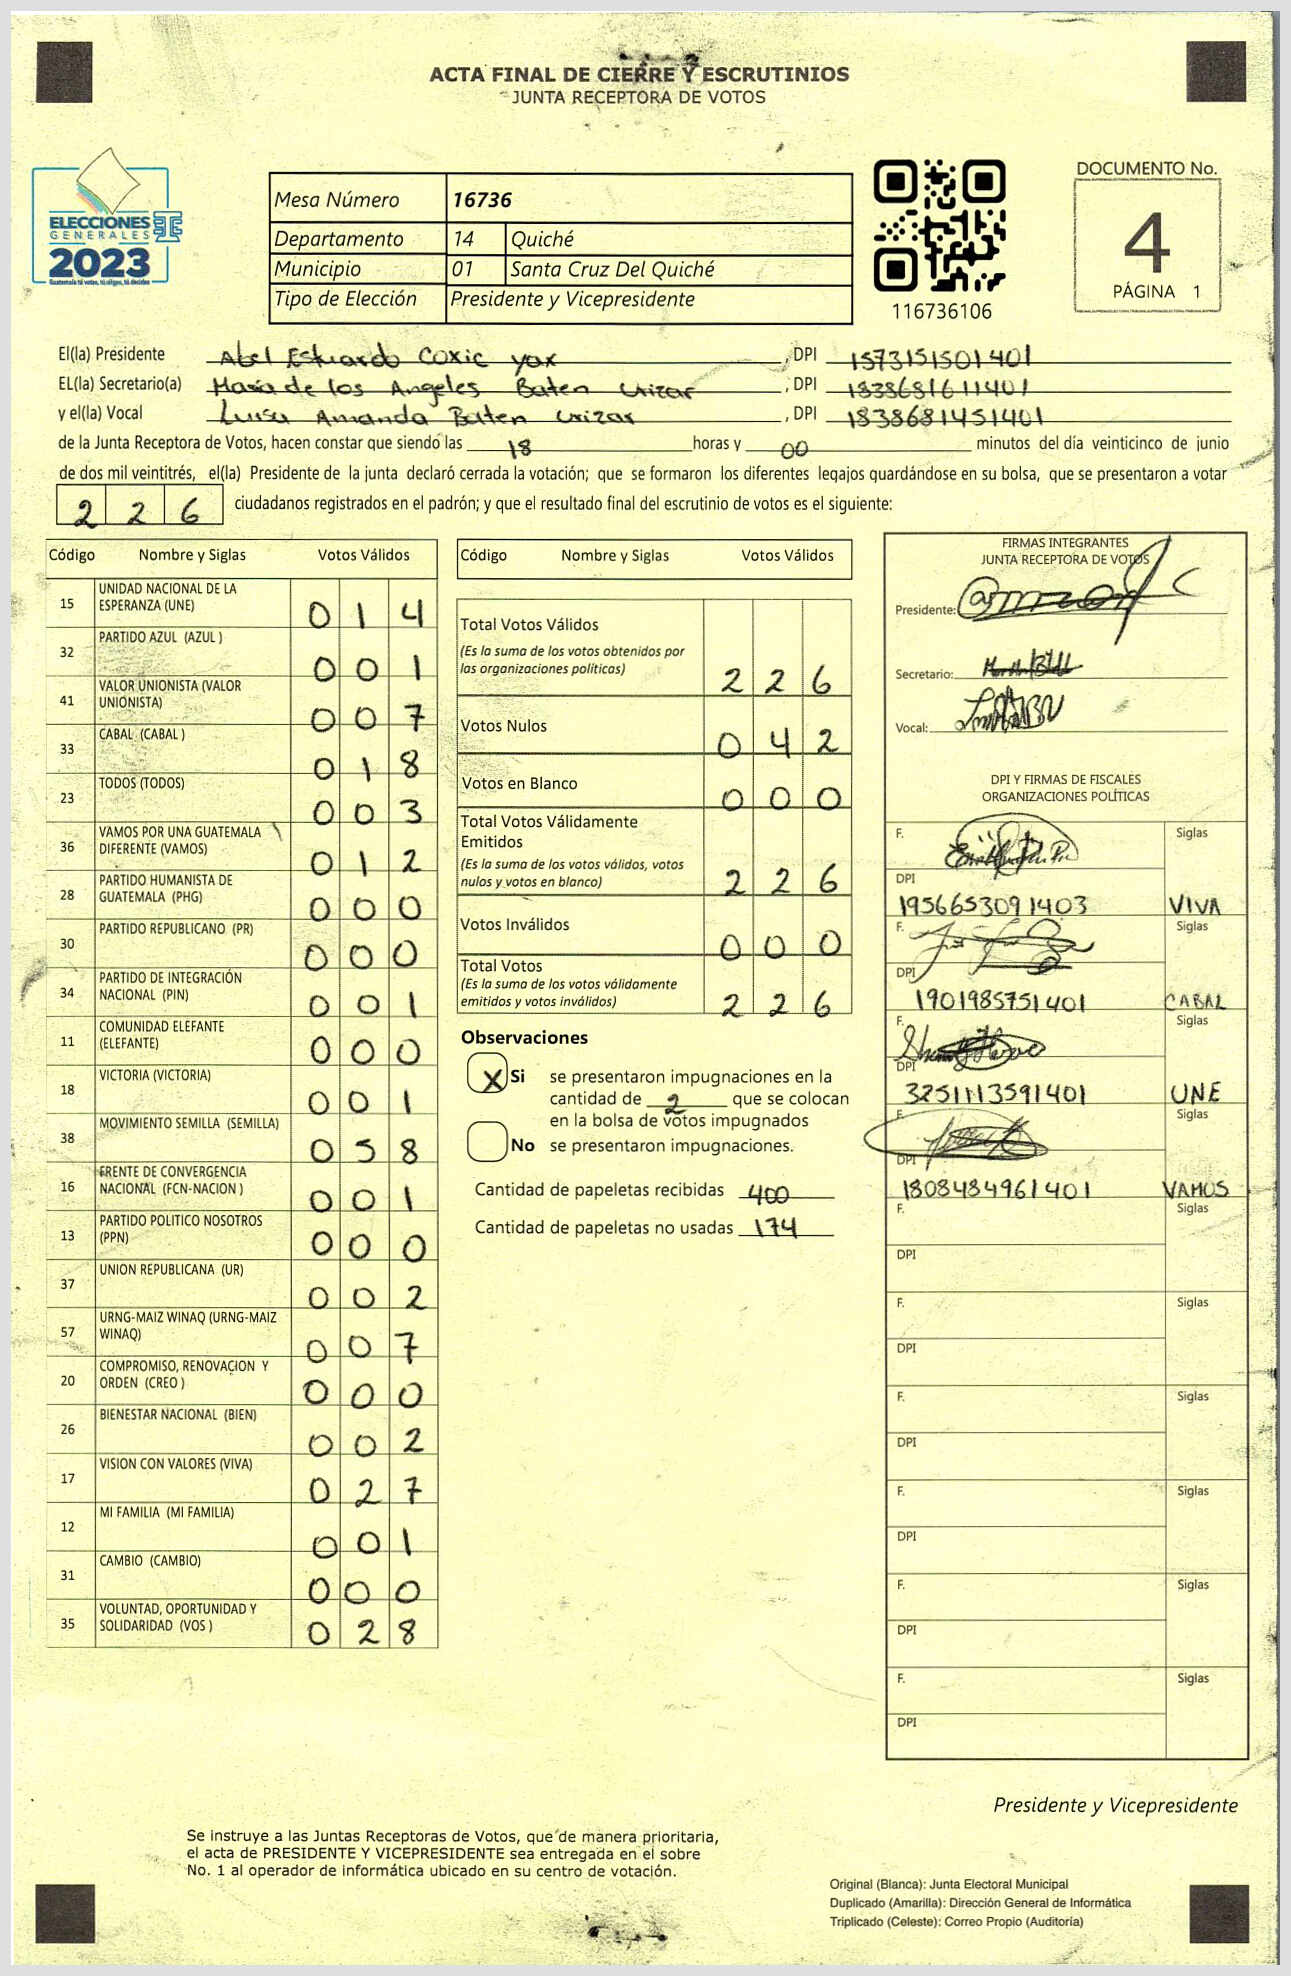 ACTA FINAL DE CIERRE Y ESCRUTINIOS
JUNTA RECEPTORA DE VOTOS
ELECCIONES
GENERALES
2023
Guatemala tú votas, tú eliges, tú decides
Mesa Número 16736
Departamento 14 Quiché
Municipio 01 Santa Cruz Del Quiché
Tipo de Elección Presidente y Vicepresidente
116736106
DOCUMENTO No.
4
PÁGINA 1
El(la) Presidente Abel Estuardo Coxic yax, DPI 1573151501401
EL(la) Secretario(a) Maria de los Angeles Baten Urizar, DPI 1838681611401
y el(la) Vocal Luisa Amanda Baten Urizar, DPI 1838681451401
de la Junta Receptora de Votos, hacen constar que siendo las 18 horas y 00 minutos del día veinticinco de junio
de dos mil veintitrés, el(la) Presidente de la junta declaró cerrada la votación; que se formaron los diferentes legajos quardándose en su bolsa, que se presentaron a votar
2 2 6 ciudadanos registrados en el padrón; y que el resultado final del escrutinio de votos es el siguiente:
Código Nombre y Siglas Votos Válidos
15 UNIDAD NACIONAL DE LA ESPERANZA (UNE) 0 1 4
32 PARTIDO AZUL (AZUL ) 0 0 1
41 VALOR UNIONISTA (VALOR UNIONISTA) 0 0 7
33 CABAL (CABAL ) 0 1 8
23 TODOS (TODOS) 0 0 3
36 VAMOS POR UNA GUATEMALA DIFERENTE (VAMOS) 0 1 2
28 PARTIDO HUMANISTA DE GUATEMALA (PHG) 0 0 0
30 PARTIDO REPUBLICANO (PR) 0 0 0
34 PARTIDO DE INTEGRACIÓN NACIONAL (PIN) 0 0 1
11 COMUNIDAD ELEFANTE (ELEFANTE) 0 0 0
18 VICTORIA (VICTORIA) 0 0 1
38 MOVIMIENTO SEMILLA (SEMILLA) 0 5 8
16 FRENTE DE CONVERGENCIA NACIONAL (FCN-NACION ) 0 0 1
13 PARTIDO POLITICO NOSOTROS (PPN) 0 0 0
37 UNION REPUBLICANA (UR) 0 0 2
57 URNG-MAIZ WINAQ (URNG-MAIZ WINAQ) 0 0 7
20 COMPROMISO, RENOVACION Y ORDEN (CREO ) 0 0 0
26 BIENESTAR NACIONAL (BIEN) 0 0 2
17 VISION CON VALORES (VIVA) 0 2 7
12 MI FAMILIA (MI FAMILIA) 0 0 1
31 CAMBIO (CAMBIO) 0 0 0
35 VOLUNTAD, OPORTUNIDAD Y SOLIDARIDAD (VOS ) 0 2 8
Código Nombre y Siglas Votos Válidos
Total Votos Válidos
(Es la suma de los votos obtenidos por
las organizaciones políticas) 2 2 6
Votos Nulos 0 4 2
Votos en Blanco 0 0 0
Total Votos Válidamente
Emitidos
(Es la suma de los votos válidos, votos
nulos y votos en blanco) 2 2 6
Votos Inválidos 0 0 0
Total Votos
(Es la suma de los votos válidamente
emitidos y votos inválidos) 2 2 6
Observaciones
X Si se presentaron impugnaciones en la
cantidad de 2 que se colocan
en la bolsa de votos impugnados
No se presentaron impugnaciones.
Cantidad de papeletas recibidas 400
Cantidad de papeletas no usadas 174
FIRMAS INTEGRANTES
JUNTA RECEPTORA DE VOTOS
Presidente:
Secretario:
Vocal:
DPI Y FIRMAS DE FISCALES
ORGANIZACIONES POLÍTICAS
F. Siglas
DPI
1956653091403 VIVA
F. Siglas
DPI
1901985751401 CABAL
F. Siglas
DPI
3251113591401 UNE
F. Siglas
DPI
1808484961401 VAMOS
F. Siglas
DPI
F. Siglas
DPI
F. Siglas
DPI
F. Siglas
DPI
F. Siglas
DPI
F. Siglas
DPI
Presidente y Vicepresidente
Se instruye a las Juntas Receptoras de Votos, que de manera prioritaria,
el acta de PRESIDENTE Y VICEPRESIDENTE sea entregada en el sobre
No. 1 al operador de informática ubicado en su centro de votación.
Original (Blanca): Junta Electoral Municipal
Duplicado (Amarilla): Dirección General de Informática
Triplicado (Celeste): Correo Propio (Auditoría)